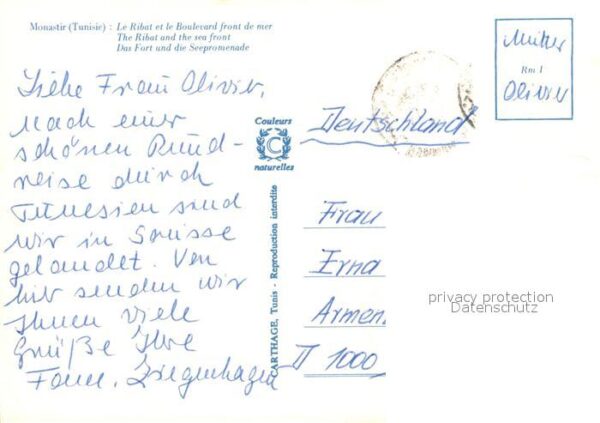 Monastir (Tunisie) : Le Ribat et le Boulevard front de mer
The Ribat and the sea front
Das Fort und die Seepromenade
Liebe Frau Olivier,
nach einer
schönen Rund-
reise durch
Tunesien sind
wir in Sousse
gelandet. Von
hier senden wir
Ihnen viele
Grüße Ihre
Fam. Ziegenhagen
Couleurs
C
naturelles
CARTHAGE, Tunis - Reproduction interdite
Mutter
Rm 1
Olivier
Deutschland
Frau
Erna
Armen.
D 1000
privacy protection
Datenschutz